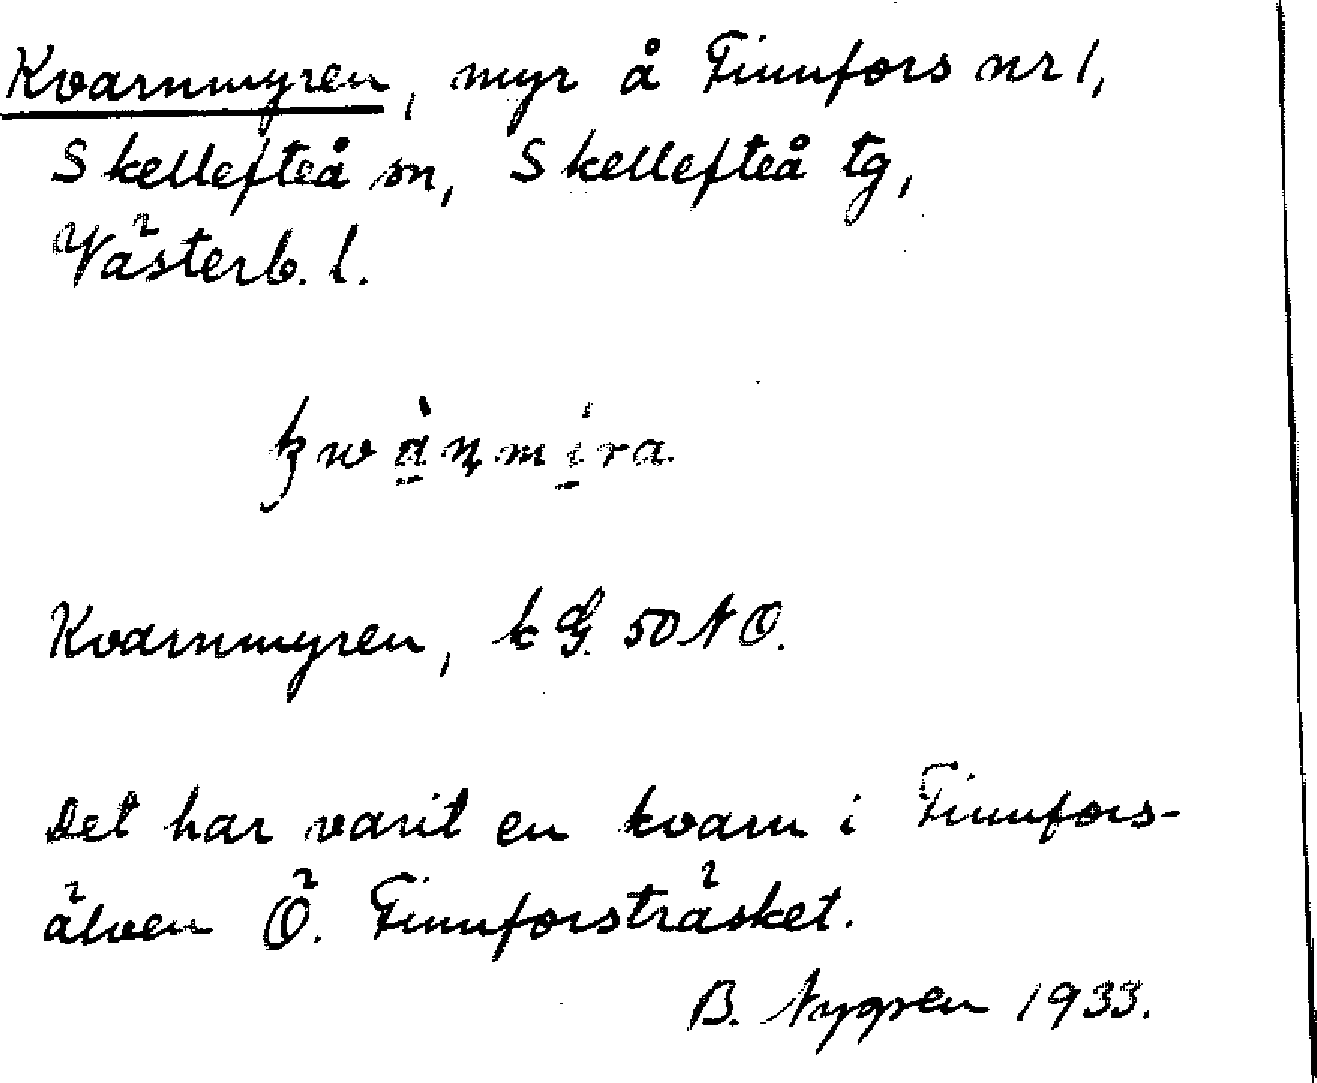 Kvarnmyren, myr å Finnfors nr 1,
Skellefteå sn, Skellefteå tg,
Västerb. l.
kwànmira
Kvarnmyren, k G. 50 NO.
Det har varit en kvarn i Finnfors-
älven Ö. Finnforsträsket.
B. Nygren 1933.